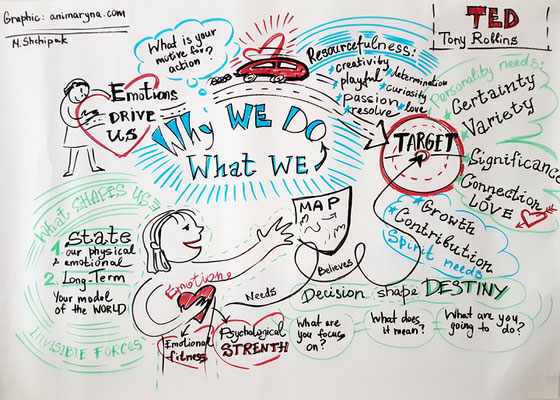 Graphic: animaryna.com
M. Shchipak
TED
Tony Robbins
What is your
motive for?
action
Emotions
DRIVE
US
Why WE DO
What WE
Resourcefulness:
creativity
playful
passion
resolve
determination
curiosity
love
TARGET
Personality needs:
Certainty
Variety
Significance
Connection
& LOVE
Growth
Contribution
Spirit needs
WHAT SHAPES US
1. State
our physical
& emotional
2. Long-Term
Your model
of the WORLD
INVISIBLE FORCES
MAP
Emotion
Needs
Believes
Emotional
fitness
Psychological
STRENTH
Decision shape DESTINY
What are
you focus
on?
What does
it mean?
What are you
going to do?